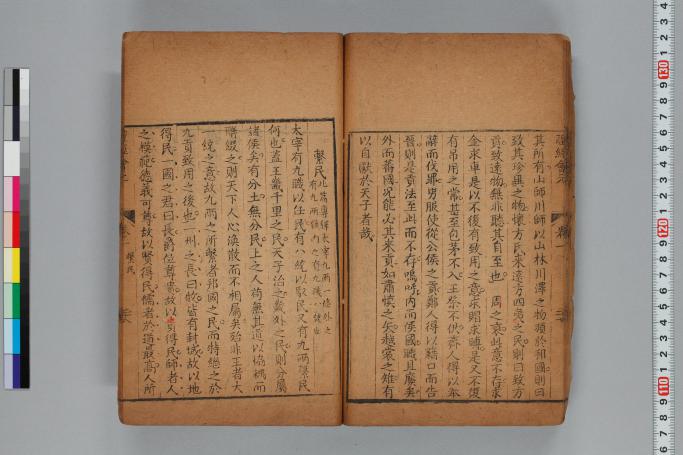 其所有山師川師以山林川澤之物頒於邦國則曰
致其珍異之物懷方氏來遠方四夷之民則曰致方
貢致遠物無非聽其自至也 周之衰此意不存求
金求車是以不復有致用之意求賻求
有吊用之常甚至包茅不入王祭不供齊人得以
辭而伐
晉則是貢法至此而不存嗚呼內而侯國職貢廢矣
外而蕃國況能必其來貢如肅慎之矢越裳之雉有
以自獻於天子者哉
繫民
太宰有九職以任民有八統以馭民又有九兩繫民
何也蓋王畿千里之民天子治之畿外之民則分屬
諸侯矣有分土無分民上之人苟無其道以協耦而
聯綴之則天下人心渙散而不相屬矣殆非王者大
一統之意故九兩之所繫者邦國之民而特繼之於
九貢致用之後也一州之長曰牧皆有封域故以地
得民一國之君曰長爵位尊貴故以貴得民師者人
之模範德義可尊故以賢得民儒者於道最高人所
繫民